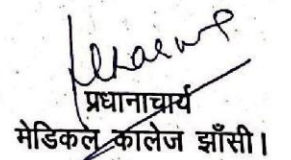 प्रधानाचार्य
मेडिकल कालेज झाँसी।